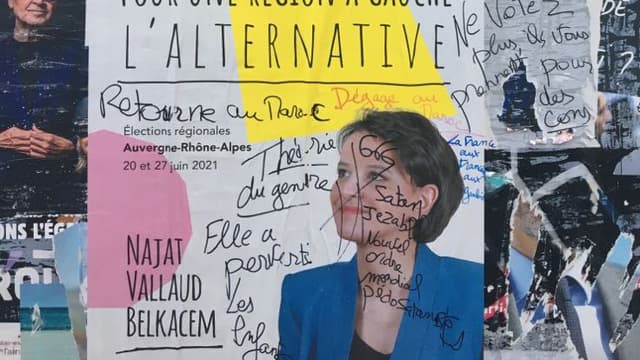 POUR UNE RÉGION À GAUCHE
L'ALTERNATIVE
Retourne au Maroc
Dégage au
Maroc
Élections régionales
Auvergne-Rhône-Alpes
20 et 27 juin 2021
Théorie
du genre
Elle a
perverti
Les
Enfants
NAJAT
VALLAUD
BELKACEM
666
Satan
Jezabel
Nouvel
ordre
mondial
Pédosatanistes
La France
aux
Français
Ne Votez
plus ils vous
prennent
pour
des
cons
DE